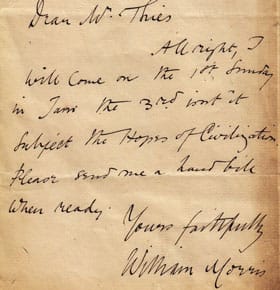 Dear Mr. Thies
All right, I
will come on the 1st Sunday
in Jan: the 3rd isn't it
Subject the Hopes of Civilization
Please send me a hand bill
when ready.
Yours faithfully
William Morris